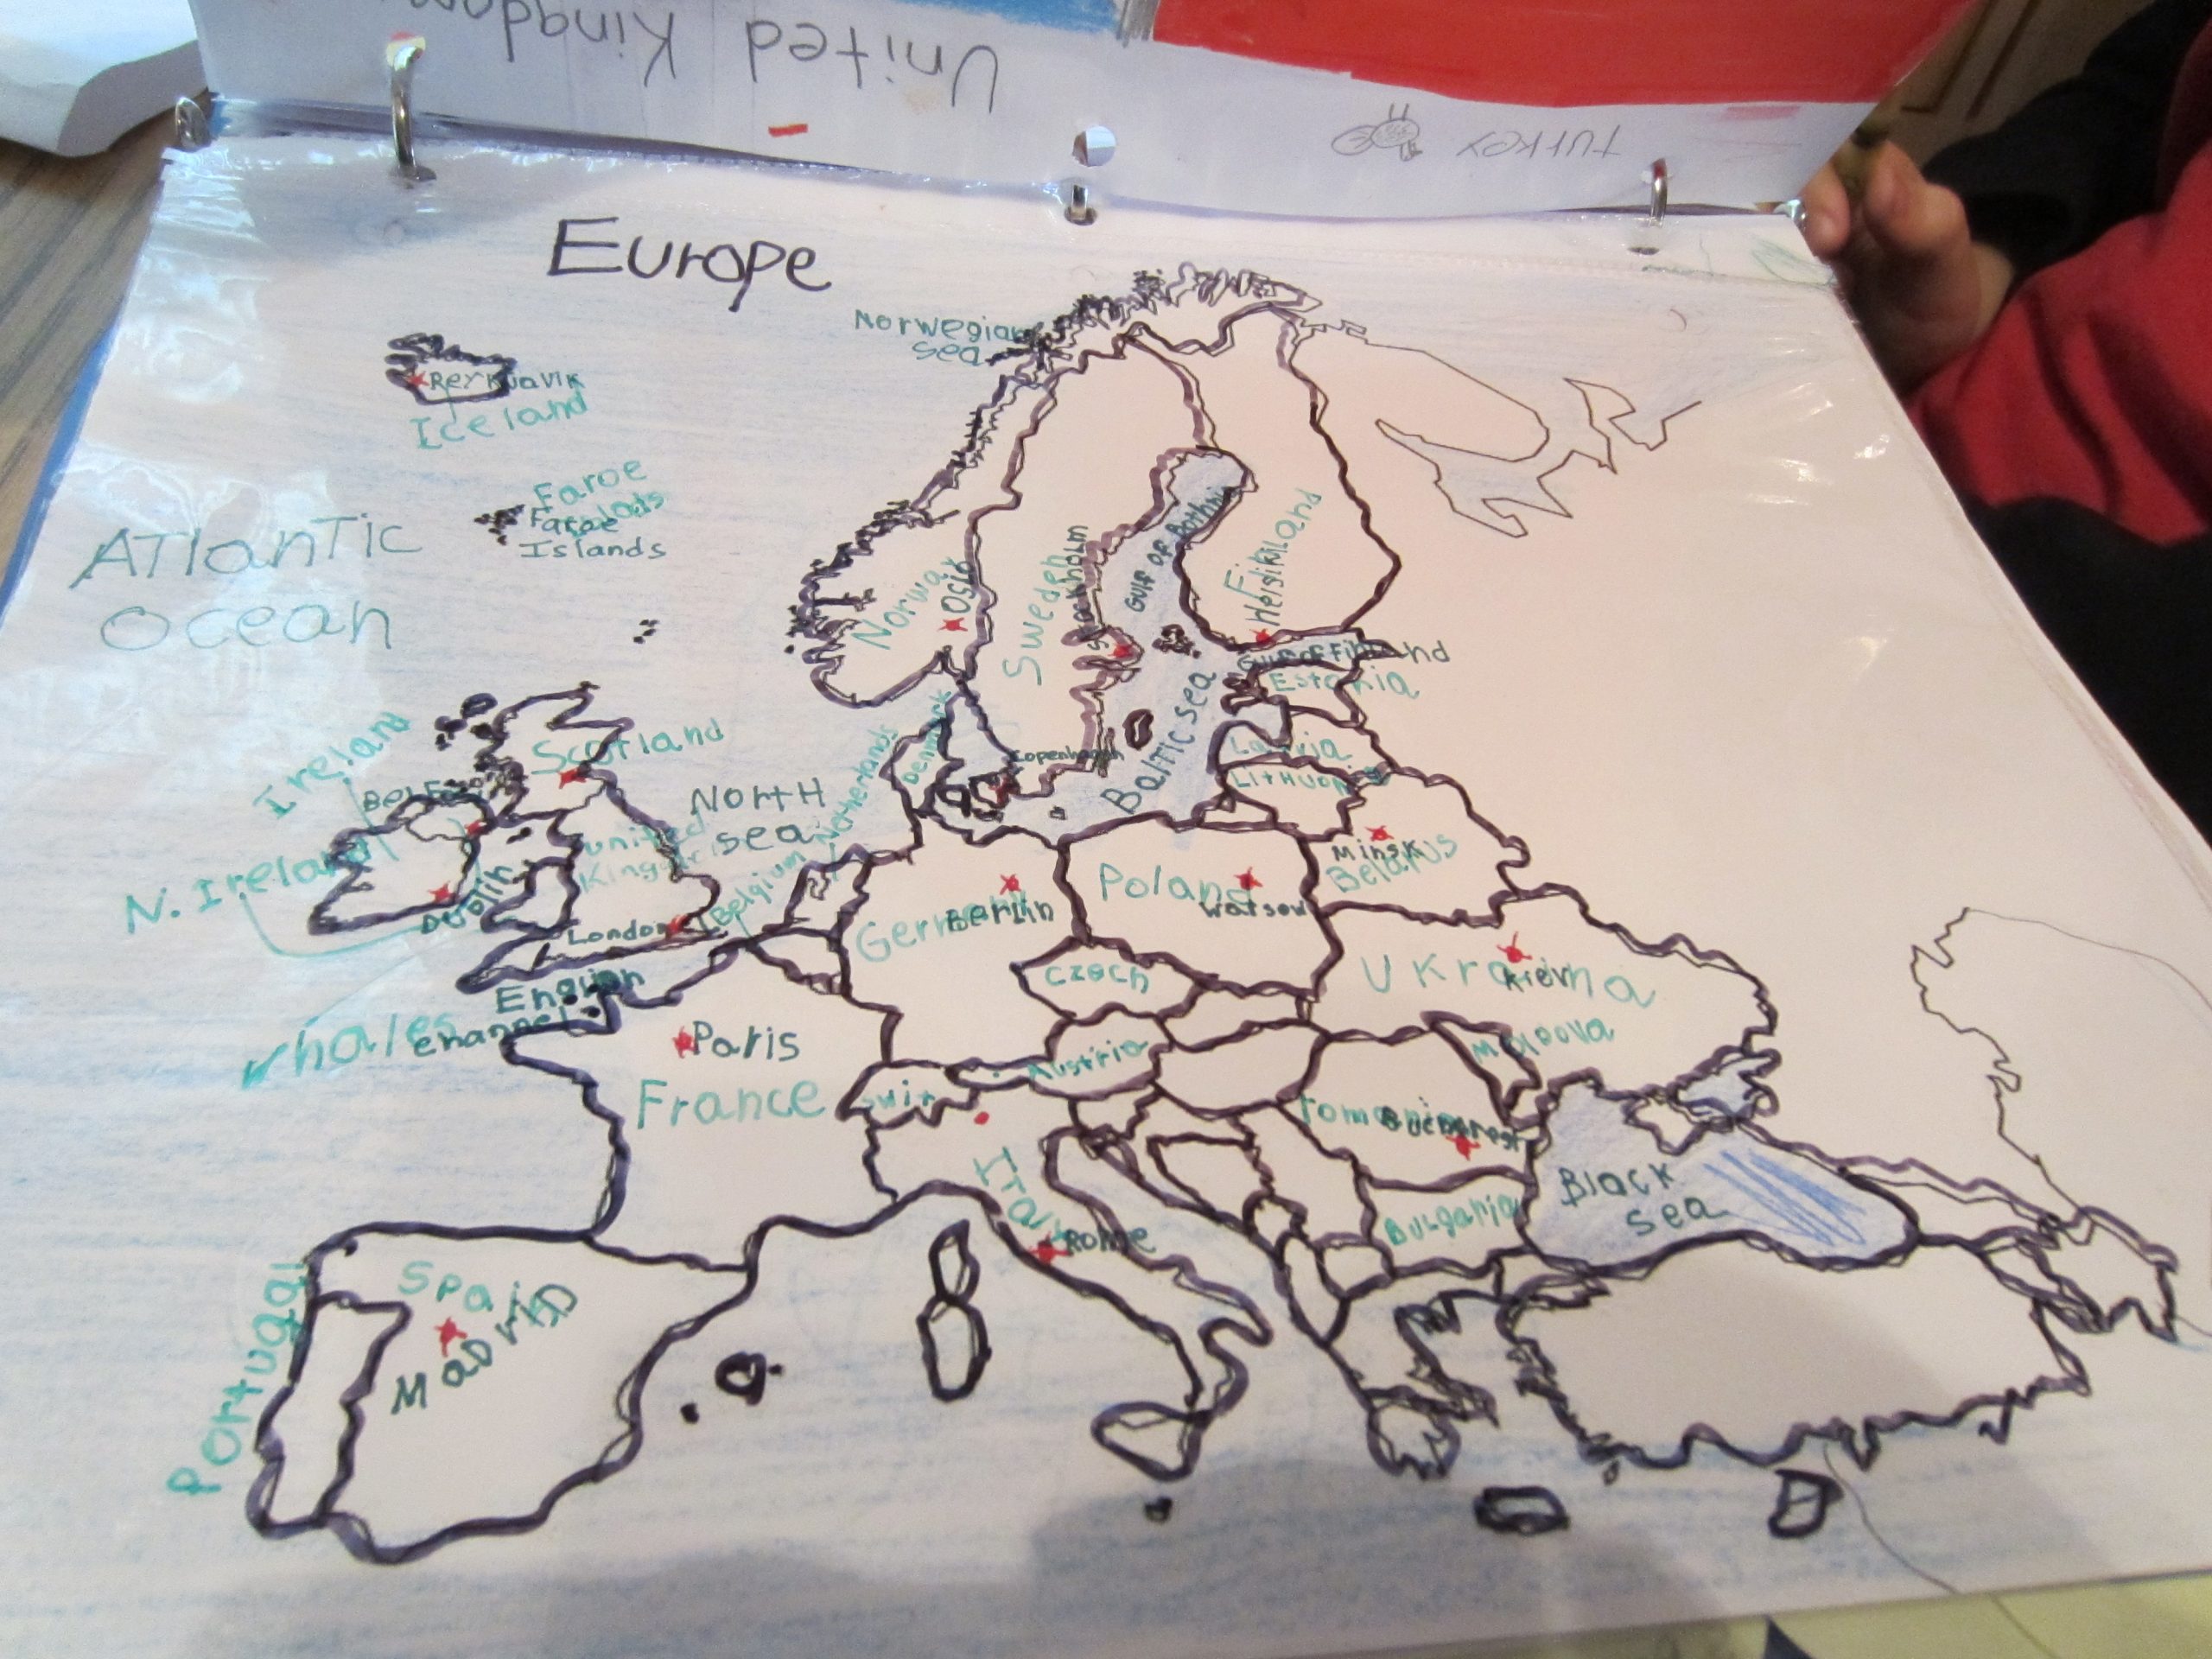 United Kingdom
turkey
Europe
Norwegian
sea
Reykjavik
Iceland
Faroe
Faroe
Islands
ATlanTic
Ocean
Norwa
Oslo
Sweden
Stockholm
GULF OF Bothni
Finland
Helsiki
GULF OF Finland
Estonia
Baltic sea
Latvia
LitHuania
Denmark
Copenhagen
Scotland
Ireland
N. Ireland
NortH
sea
Netherlands
Belgium
united
Dublin
London
English
channel
whales
Germany
Berlin
Poland
Warsow
Minsk
Belarus
UKraina
Kiev
Czech
Moldova
Austria
Swit
Paris
France
romania
Bucharest
Italy
Rome
Bulgaria
Black
sea
Portugal
Spain
MaDriD